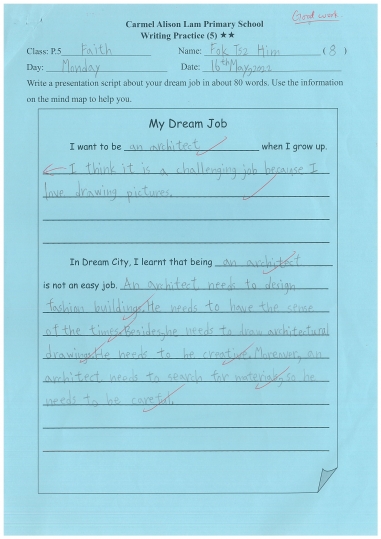 Good work.
Carmel Alison Lam Primary School
Writing Practice (5) ★★
Class: P.5 Faith Name: Fok Tsz Him ( 8 )
Day: Monday Date: 16th May, 2022
Write a presentation script about your dream job in about 80 words. Use the information
on the mind map to help you.
My Dream Job
I want to be an architect when I grow up.
I think it is a challenging job because I
love drawing pictures.
In Dream City, I learnt that being an architect
is not an easy job. An architect needs to design
fashion buildings. He needs to have the cense
of the times. Besides, he needs to draw architectural
drawings. He needs to be creative. Moreover, an
architect needs to search for materials, so he
needs to be careful.